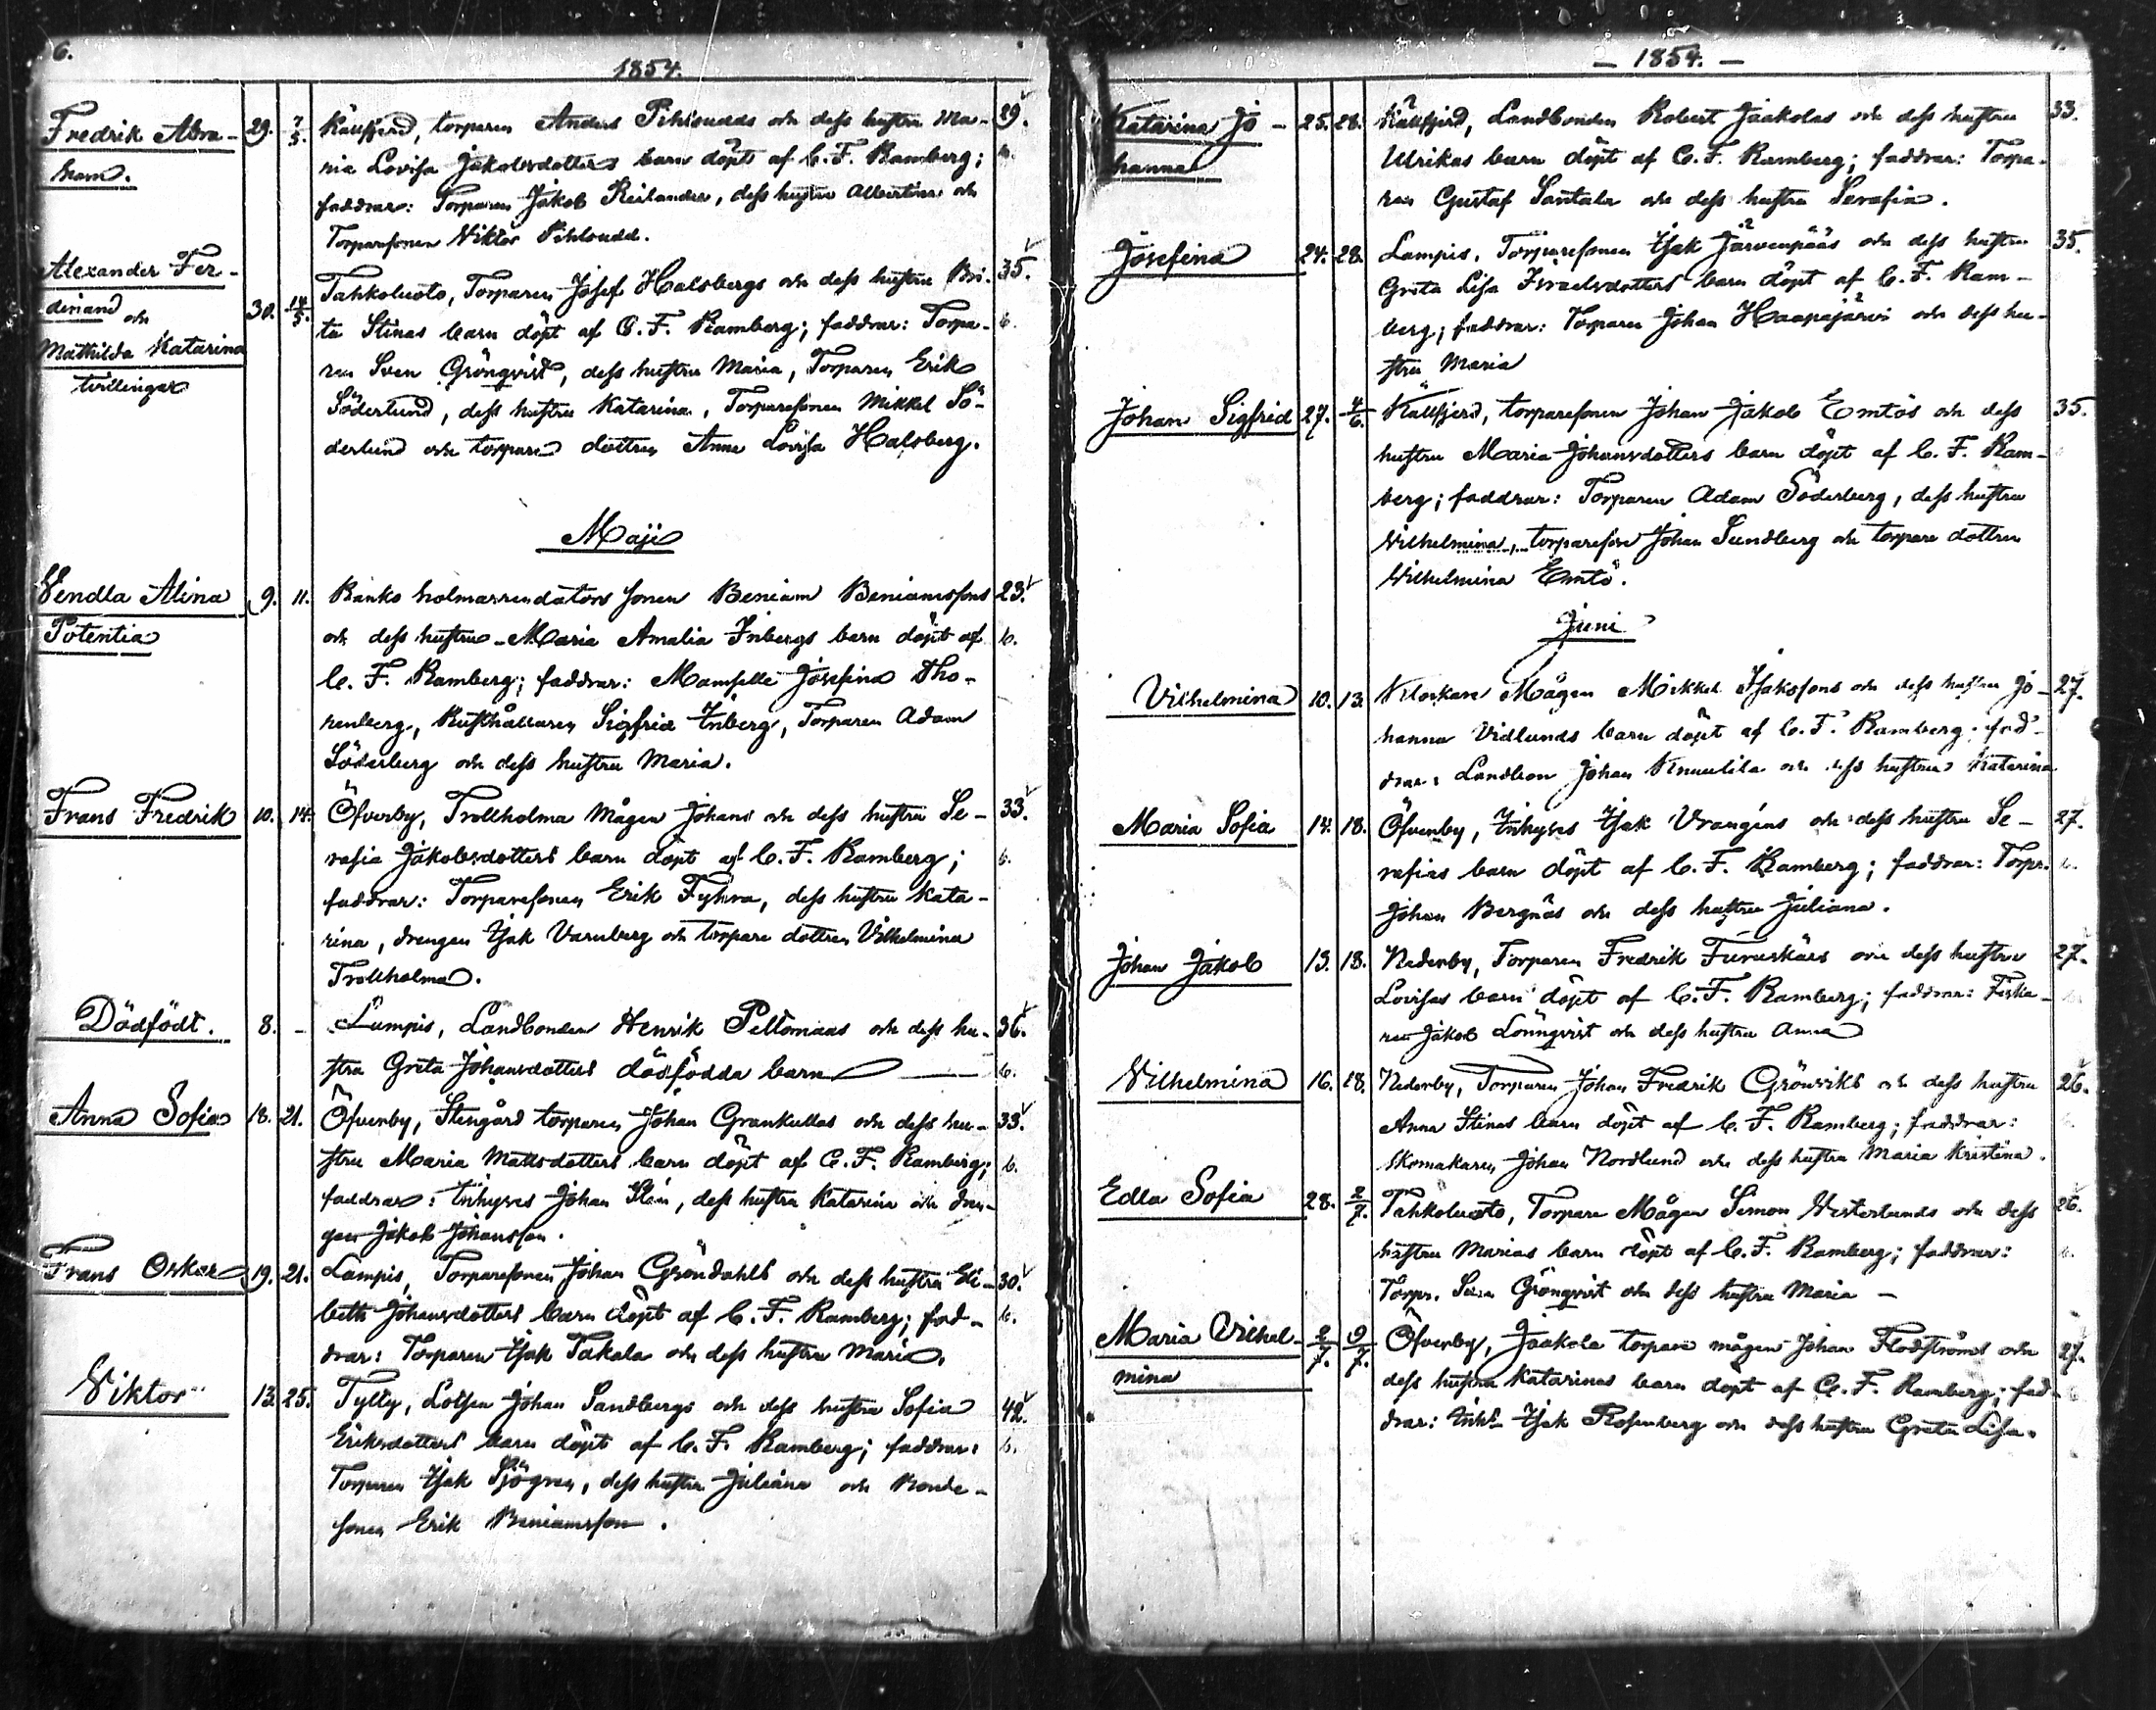 6.
1854.
Fredrik Abra-
ham.
29. 7/5. Källfjerd, torparen Anders Pihlsudds och dess hustru Ma- 29.
ria Lovisa Jakobsdotters barn döpt af C. F. Ramberg; b.
faddrar: Torparen Jakob Reilander, dess hustru Albertina och
Torparesonen Viktor Pihlsudd.
Alexander Fer-
dinand och
Mathilda Katarina
tvillingar
30. 14/5. Tahkoluoto, Torparen Josef Halsbergs och dess hustru Bri- 35.
ta Stinas barn döpt af C. F. Ramberg; faddrar: Torpa- b.
ren Sven Grönqvist, dess hustru Maria, Torparen Erik
Söderlund, dess hustru Katarina, Torparesonen Mikkel Sö-
derlund och torpare dottren Anna Lovisa Halsberg.
Maji
Vendla Alina
Potentia
9. 11. Ranks holmarrendators sonen Beniam Beniamssons 23.
och dess hustru Maria Amalia Inbergs barn döpt af b.
C. F. Ramberg; faddrar: Mamselle Josefina Tho-
renberg, Rusthållaren Sigfrid Inberg, Torparen Adam
Söderberg och dess hustru Maria.
Frans Fredrik 10. 14. Öfverby, Trollholma Mågen Johans och dess hustru Se- 33.
rafia Jakobsdotters barn döpt af C. F. Ramberg; b.
faddrar: Torparesonen Erik Fyhra, dess hustru Kata-
rina, drengen Isak Varnberg och torpare dottren Vilhelmina
Trollholma.
Dödfödt. 8. - Lampis, Landbonden Henrik Peltomaas och dess hu- 36.
stru Greta Johansdotters dödfödda barn b.
Anna Sofia 18. 21. Öfverby, Stengård torparen Johan Grankullas och dess hu- 33.
stru Maria Mattsdotters barn döpt af C. F. Ramberg; b.
faddrar: Inhyses Johan Sten, dess hustru Katarina och dren-
gen Jakob Johansson.
Frans Oskar 19. 21. Lampis, Torparesonen Johan Gröndahls och dess hustru Eli- 30.
beth Johansdotters barn döpt af C. F. Ramberg; fad- b.
drar: Torparen Isak Takala och dess hustru Maria.
Viktor 13. 25. Tylty, Lotsen Johan Sandbergs och dess hustru Sofia 42.
Eriksdotters barn döpt af C. F. Ramberg; faddrar: b.
Torparen Isak Sjögren, dess hustru Juliana och Bonde-
sonen Erik Beniamsson.
7.
- 1854. -
Katarina Jo-
hanna
25. 28. Källfjerd, Landbonden Robert Jaakolas och dess hustru 33.
Ulrikas barn döpt af C. F. Ramberg; faddrar: Torpa-
ren Gustaf Santala och dess hustru Serafia.
Josefina 24. 28. Lampis, Torparesonen Isak Järvenpääs och dess hustru 35.
Greta Lisa Israelsdotters barn döpt af C. F. Ram-
berg; faddrar: Torparen Johan Haapajärvi och dess hu-
stru Maria
Johan Sigfrid 27. 4/6. Källfjerd, torparesonen Johan Jakob Emtös och dess 35.
hustru Maria Johansdotters barn döpt af C. F. Ram-
berg; faddrar: Torparen Adam Söderberg, dess hustru
Vilhelmina, torpareson Johan Sundberg och torpare dottren
Vilhelmina Emtö.
Juni
Vilhelmina 10. 13. Klockare Mågen Mikkel Isakssons och dess hustru Jo- 27.
hanna Vidlunds barn döpt af C. F. Ramberg; fad-
drar: Landbon Johan Knuutila och dess hustru Katarina
Maria Sofia 14. 18. Öfverby, Inhyses Isak Vrangéns och dess hustru Se- 27.
rafias barn döpt af C. F. Ramberg; faddrar: Torpr. b.
Johan Bergnäs och dess hustru Juliana.
Johan Jakob 13. 18. Nederby, Torparen Fredrik Furuskärs och dess hustru 27.
Lovisas barn döpt af C. F. Ramberg; faddrar: Fiska-
ren Jakob Lönnqvist och dess hustru Anna
Vilhelmina 16. 18. Nederby, Torparen Johan Fredrik Grönviks och dess hustru 26.
Anna Stinas barn döpt af C. F. Ramberg; faddrar:
Skomakaren Johan Nordlund och dess hustru Maria Kristina.
Edla Sofia 28. 2/7. Tahkoluoto, Torpare Mågen Simon Vesterlunds och dess 26.
hustru Marias barn döpt af C. F. Ramberg; faddrar: b.
Torpr. Sven Grönqvist och dess hustru Maria -
Maria Vilhel-
mina
2/7. 9/7. Öfverby, Jaakola torpare mågen Johan Flodströms och 27.
dess hustru Katarinas barn döpt af C. F. Ramberg; fad-
drar: Inhs Isak Rosenberg och dess hustru Greta Lisa.